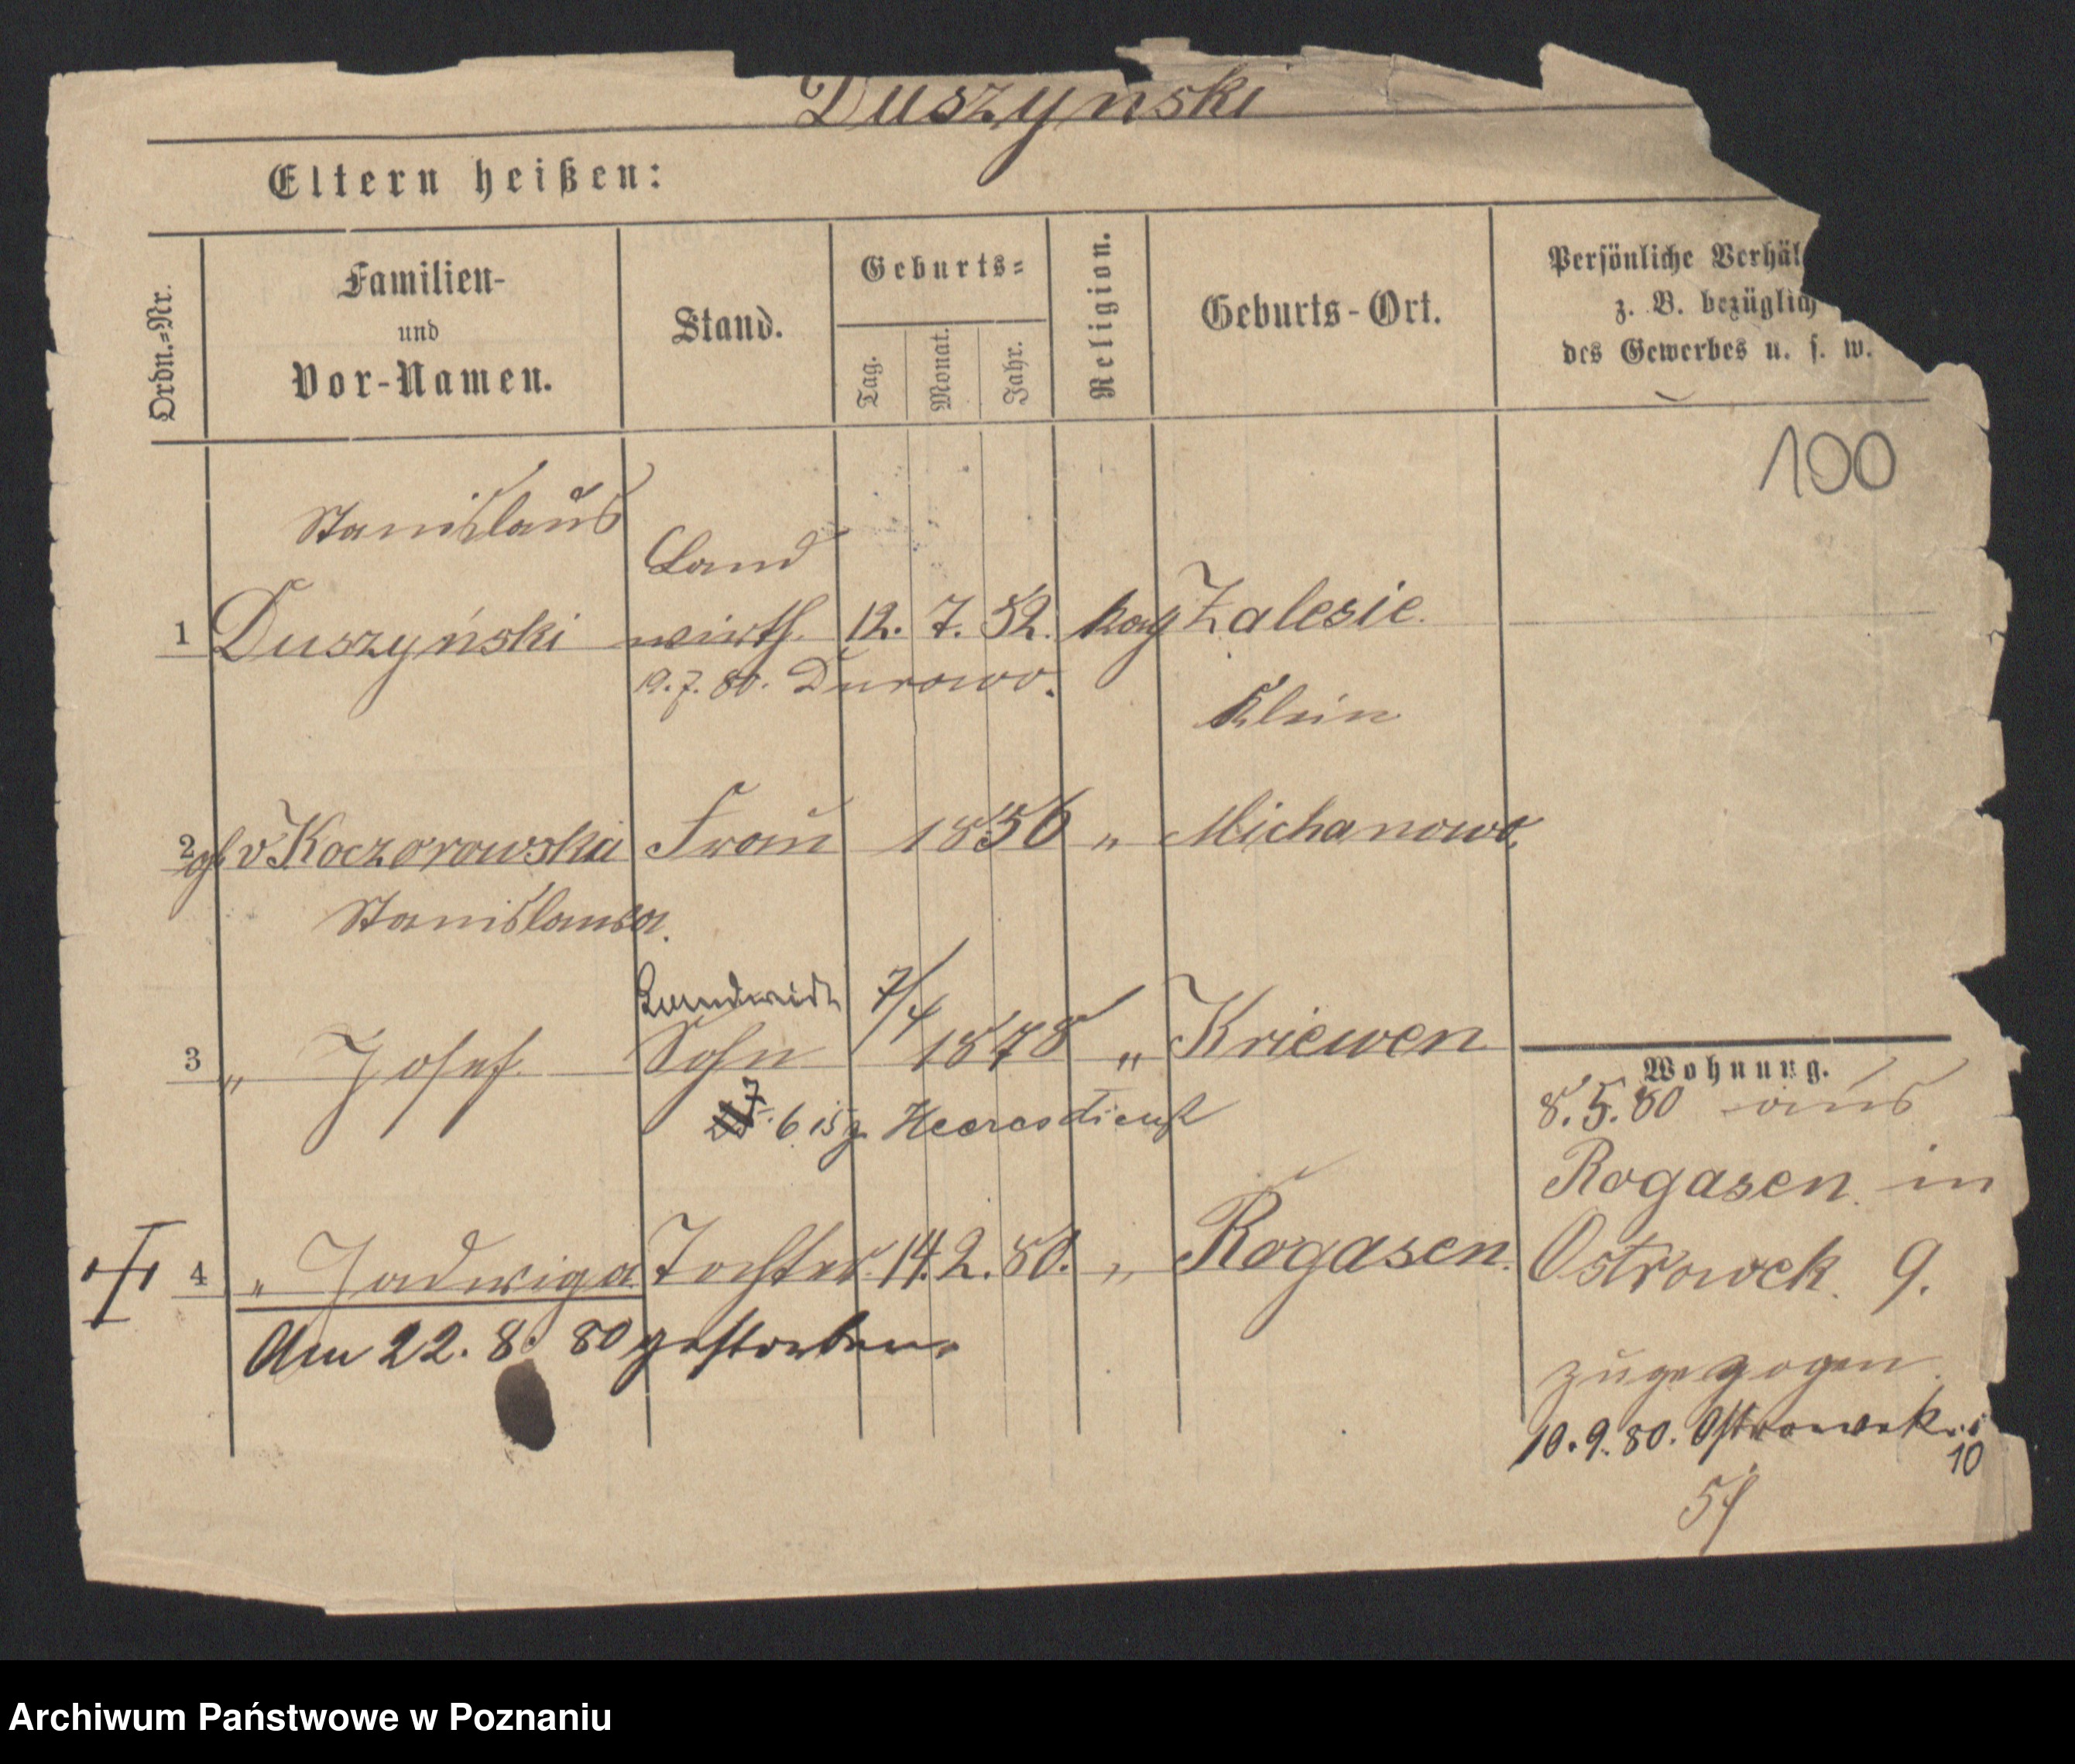 Duszynski
Eltern heißen:
Ordn.=Nr.
Familien-
und
Vor-Namen.
Stand.
Geburts=
Tag.
Monat.
Jahr.
Religion.
Geburts-Ort.
Persönliche Verhäl
z. B. bezüglich
des Gewerbes u. s. w.
100
Stanislaus
Land
1 Duszyński wirth. 12. 7. 52. Zalesie.
19. 7. 80. Durowo.
Klein
2 v Koczorowska Frau 1856 „ Michanowo.
Stanislawa.
Landwirt 7/4
3 „ Josef. Sohn 1878 „ Kriewen
7. 6 15 z. Heeresdienst
4 „ Jadwiga Tochter. 14. 2. 80. „ Rogasen.
Am 22. 8. 80 gestorben.
Wohnung.
8. 5. 80 aus
Rogasen in
Ostrowek 9.
zugezogen.
10. 9. 80. Ostrowek
10
Archiwum Państwowe w Poznaniu